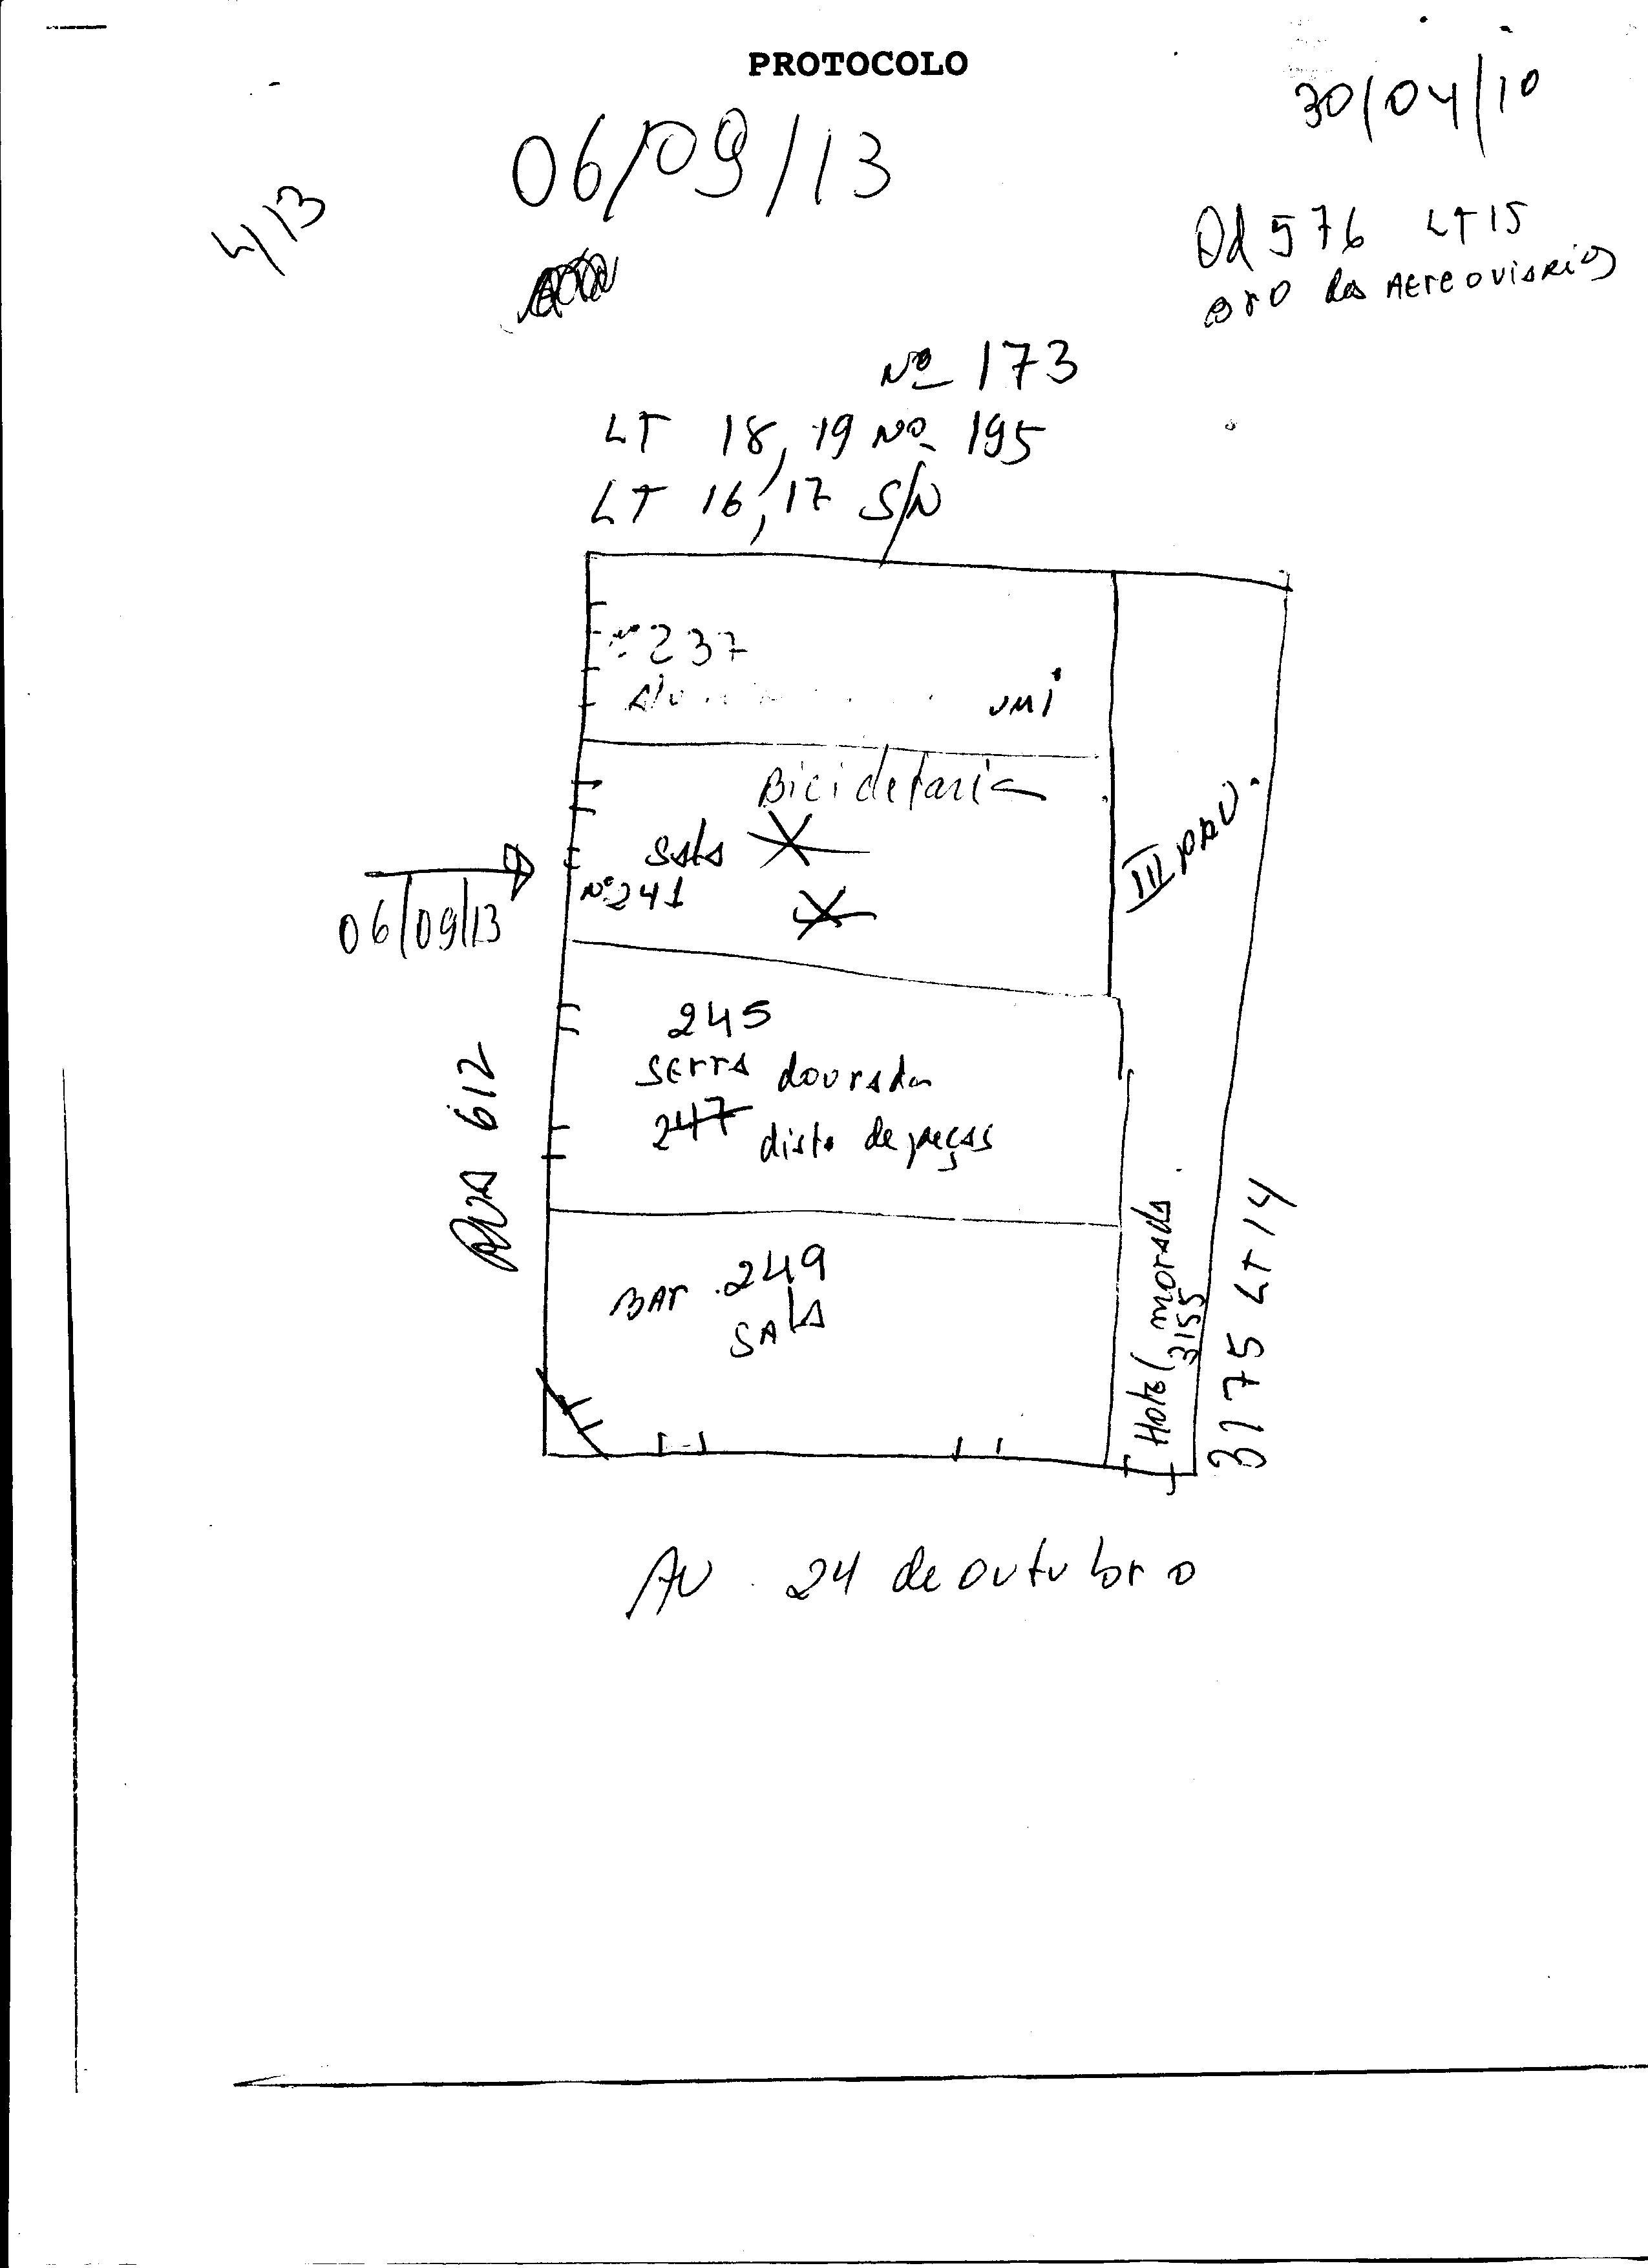 PROTOCOLO
30/04/10
06/09/13
4/13
Qd 576 LT 15
BrO dos AEreoviArios
Nº 173
LT 18, 19 Nº 195
LT 16, 17 S/N
Nº 237
Bicicletaria
SALA
Nº 241
06/09/13
III PAV.
245
SErrA dourada
247 dist. de peças
RUA 612
BAr 249
SALA
Hotel morada
3155
3175 LT 14
AV. 24 de outubro